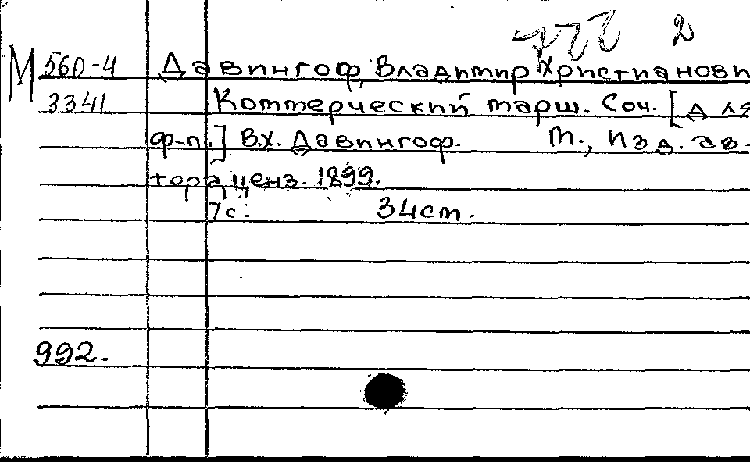 2
М 560-4 Давингоф, Владимир Христианови
3341 Коммерческий марш. Соч. [для
ф-п.] В.Х. Давингоф. М., Изд. ав-
тора, ценз. 1899.
7 с. 34 см.
992.